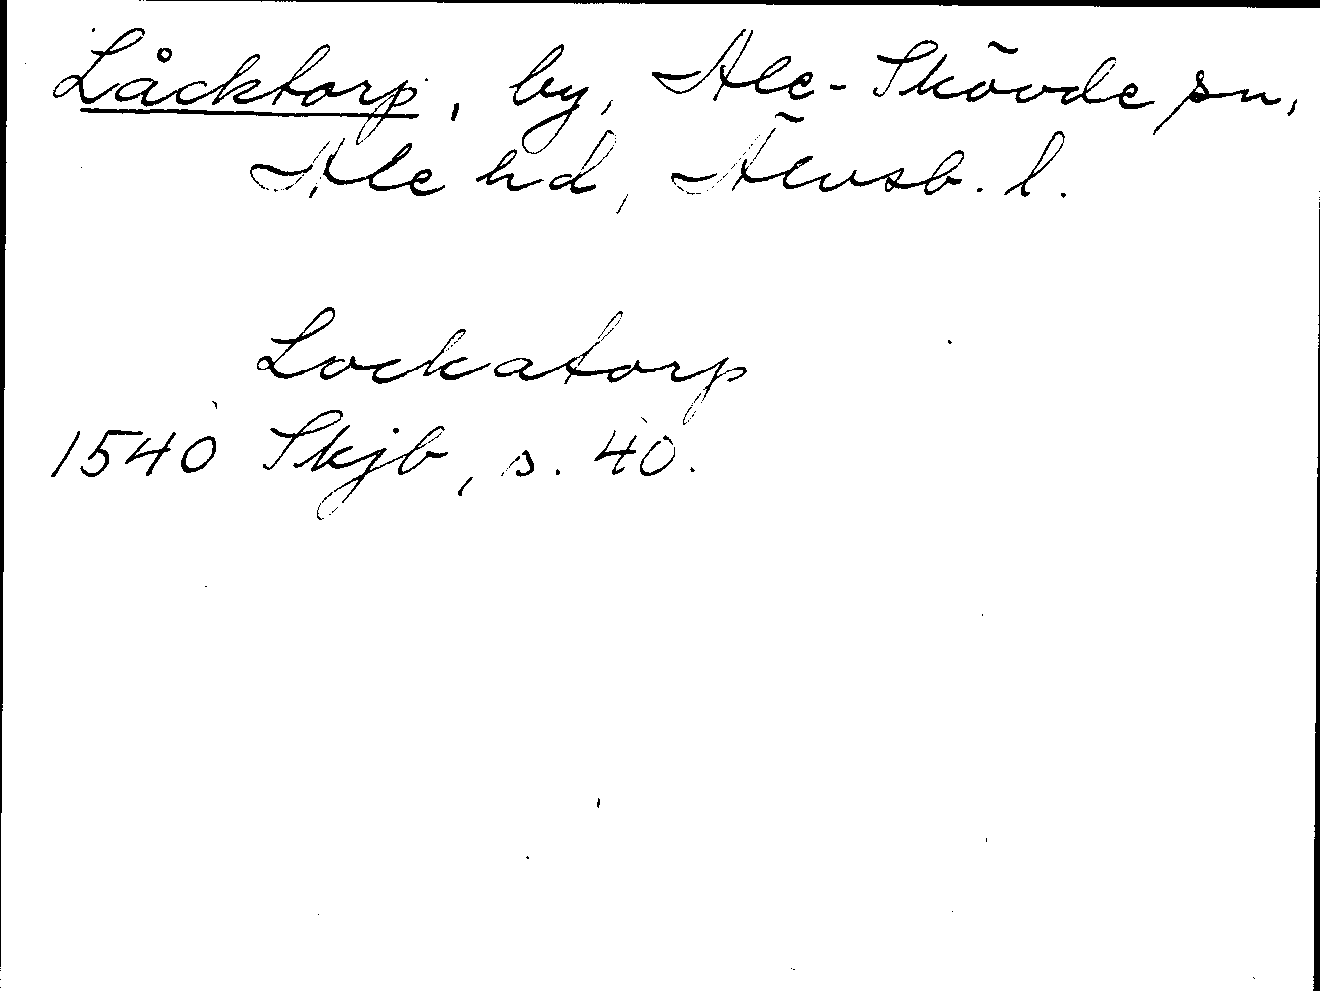 Låcktorp, by, Ale-Skövde sn,
Ale hd, Älvsb. l.
Lockatorp
1540 Skjb, s. 40.